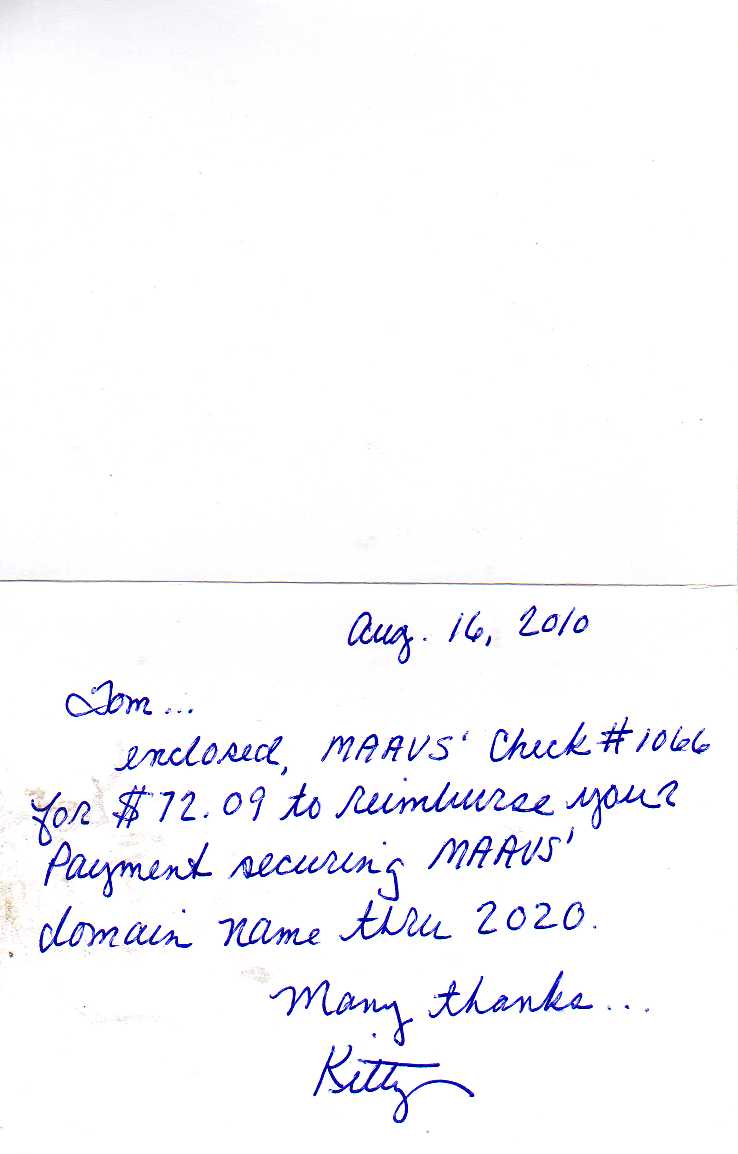 Aug. 16, 2010
Tom...
enclosed, MAAVS' Check #1066
for $72.09 to reimburse your
Payment securing MAAVS'
domain name thru 2020.
Many thanks...
Kitty